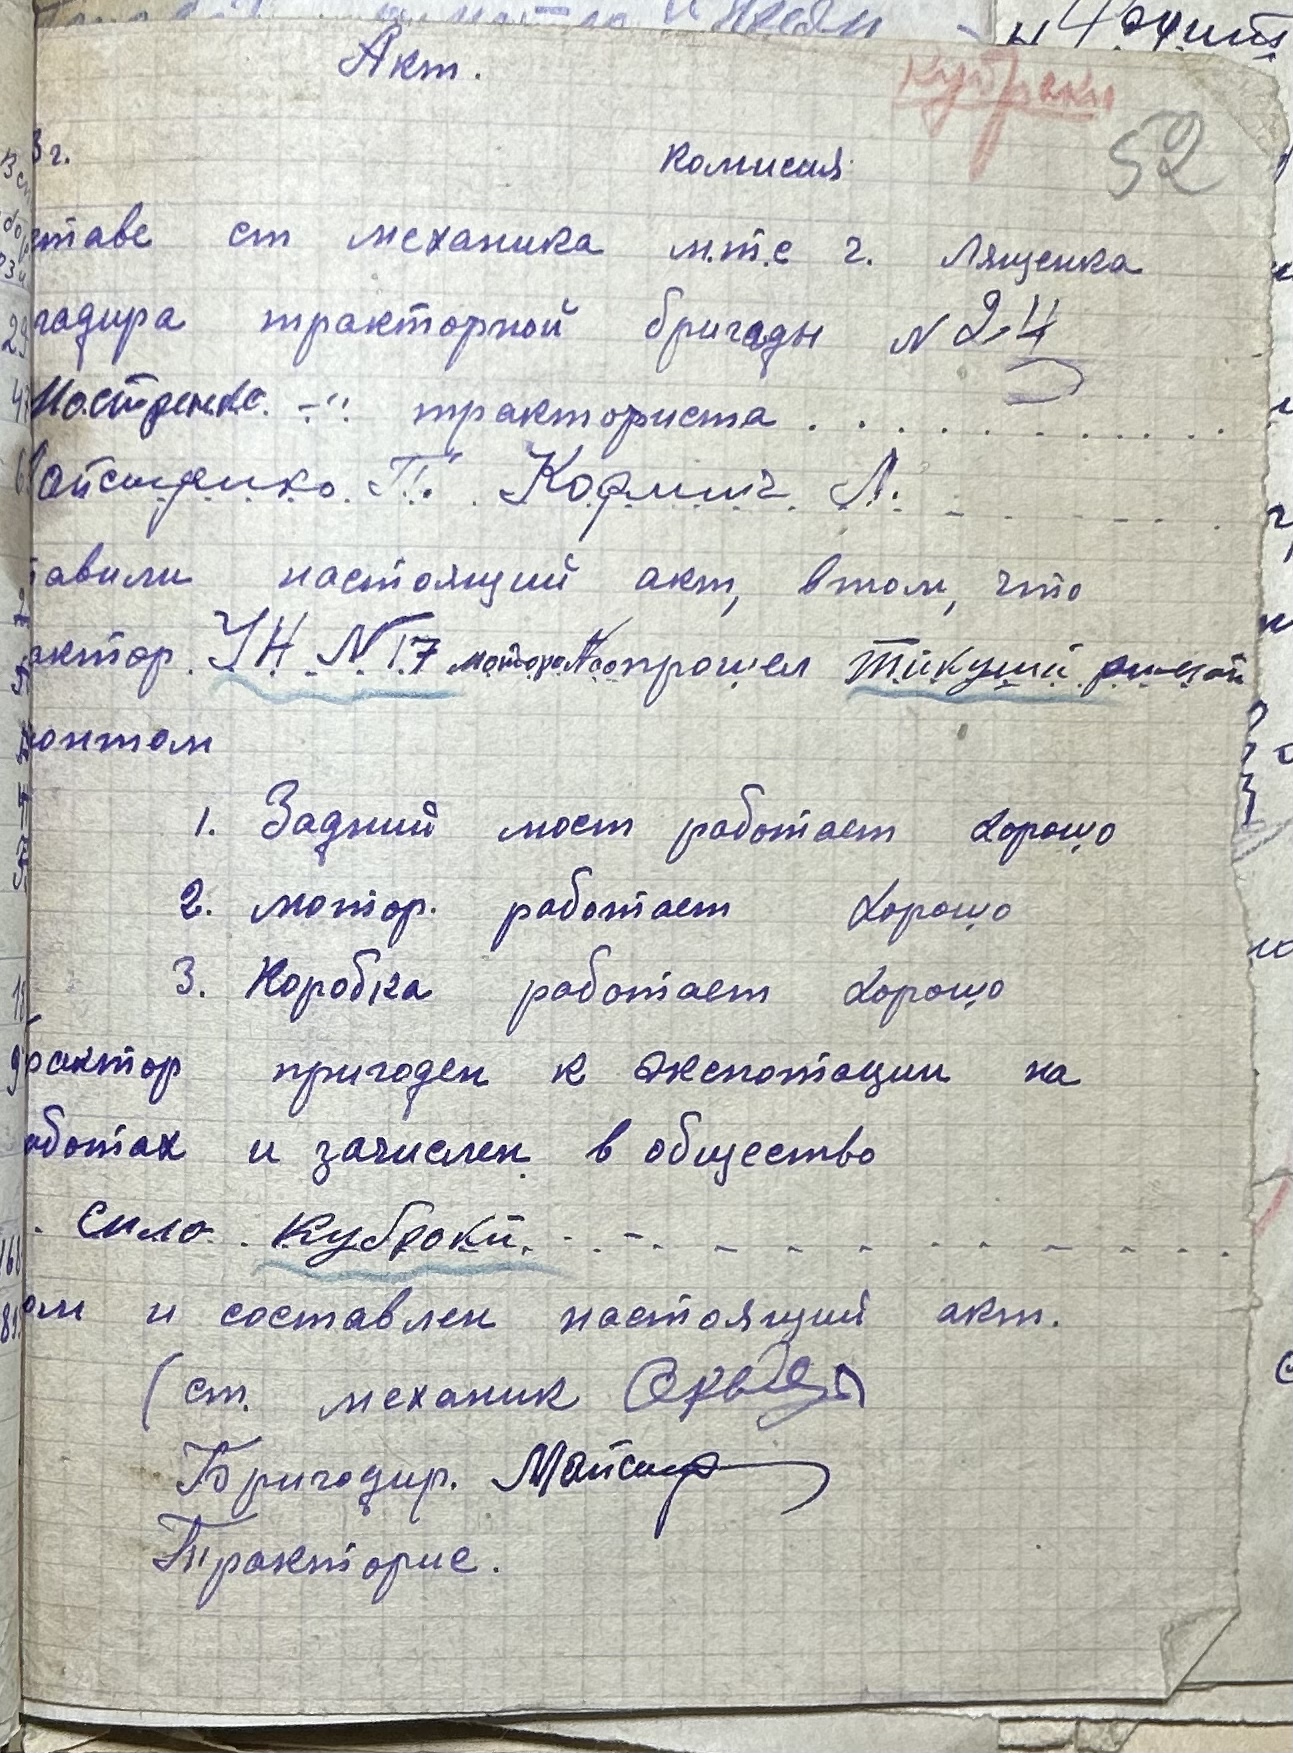 Акт.
Кубраки
52
3 г.
комисия
ставе ст механика м.т.с г. Лященка
гадира тракторной бригады N 24
тракториста
П. Л.
тавили настоящий акт, втом, что
актор УН N 17 мотора No прошел тикущий
онтом
1. Задний мост работает хорошо
2. мотор. работает хорошо
3. Коробка работает хорошо
рактор пригоден к экспотации на
аботах и зачислен в общество
сило Кубраки
ом и составлен настоящий акт.
(ст. механик
Бригадир.
Тракторис.